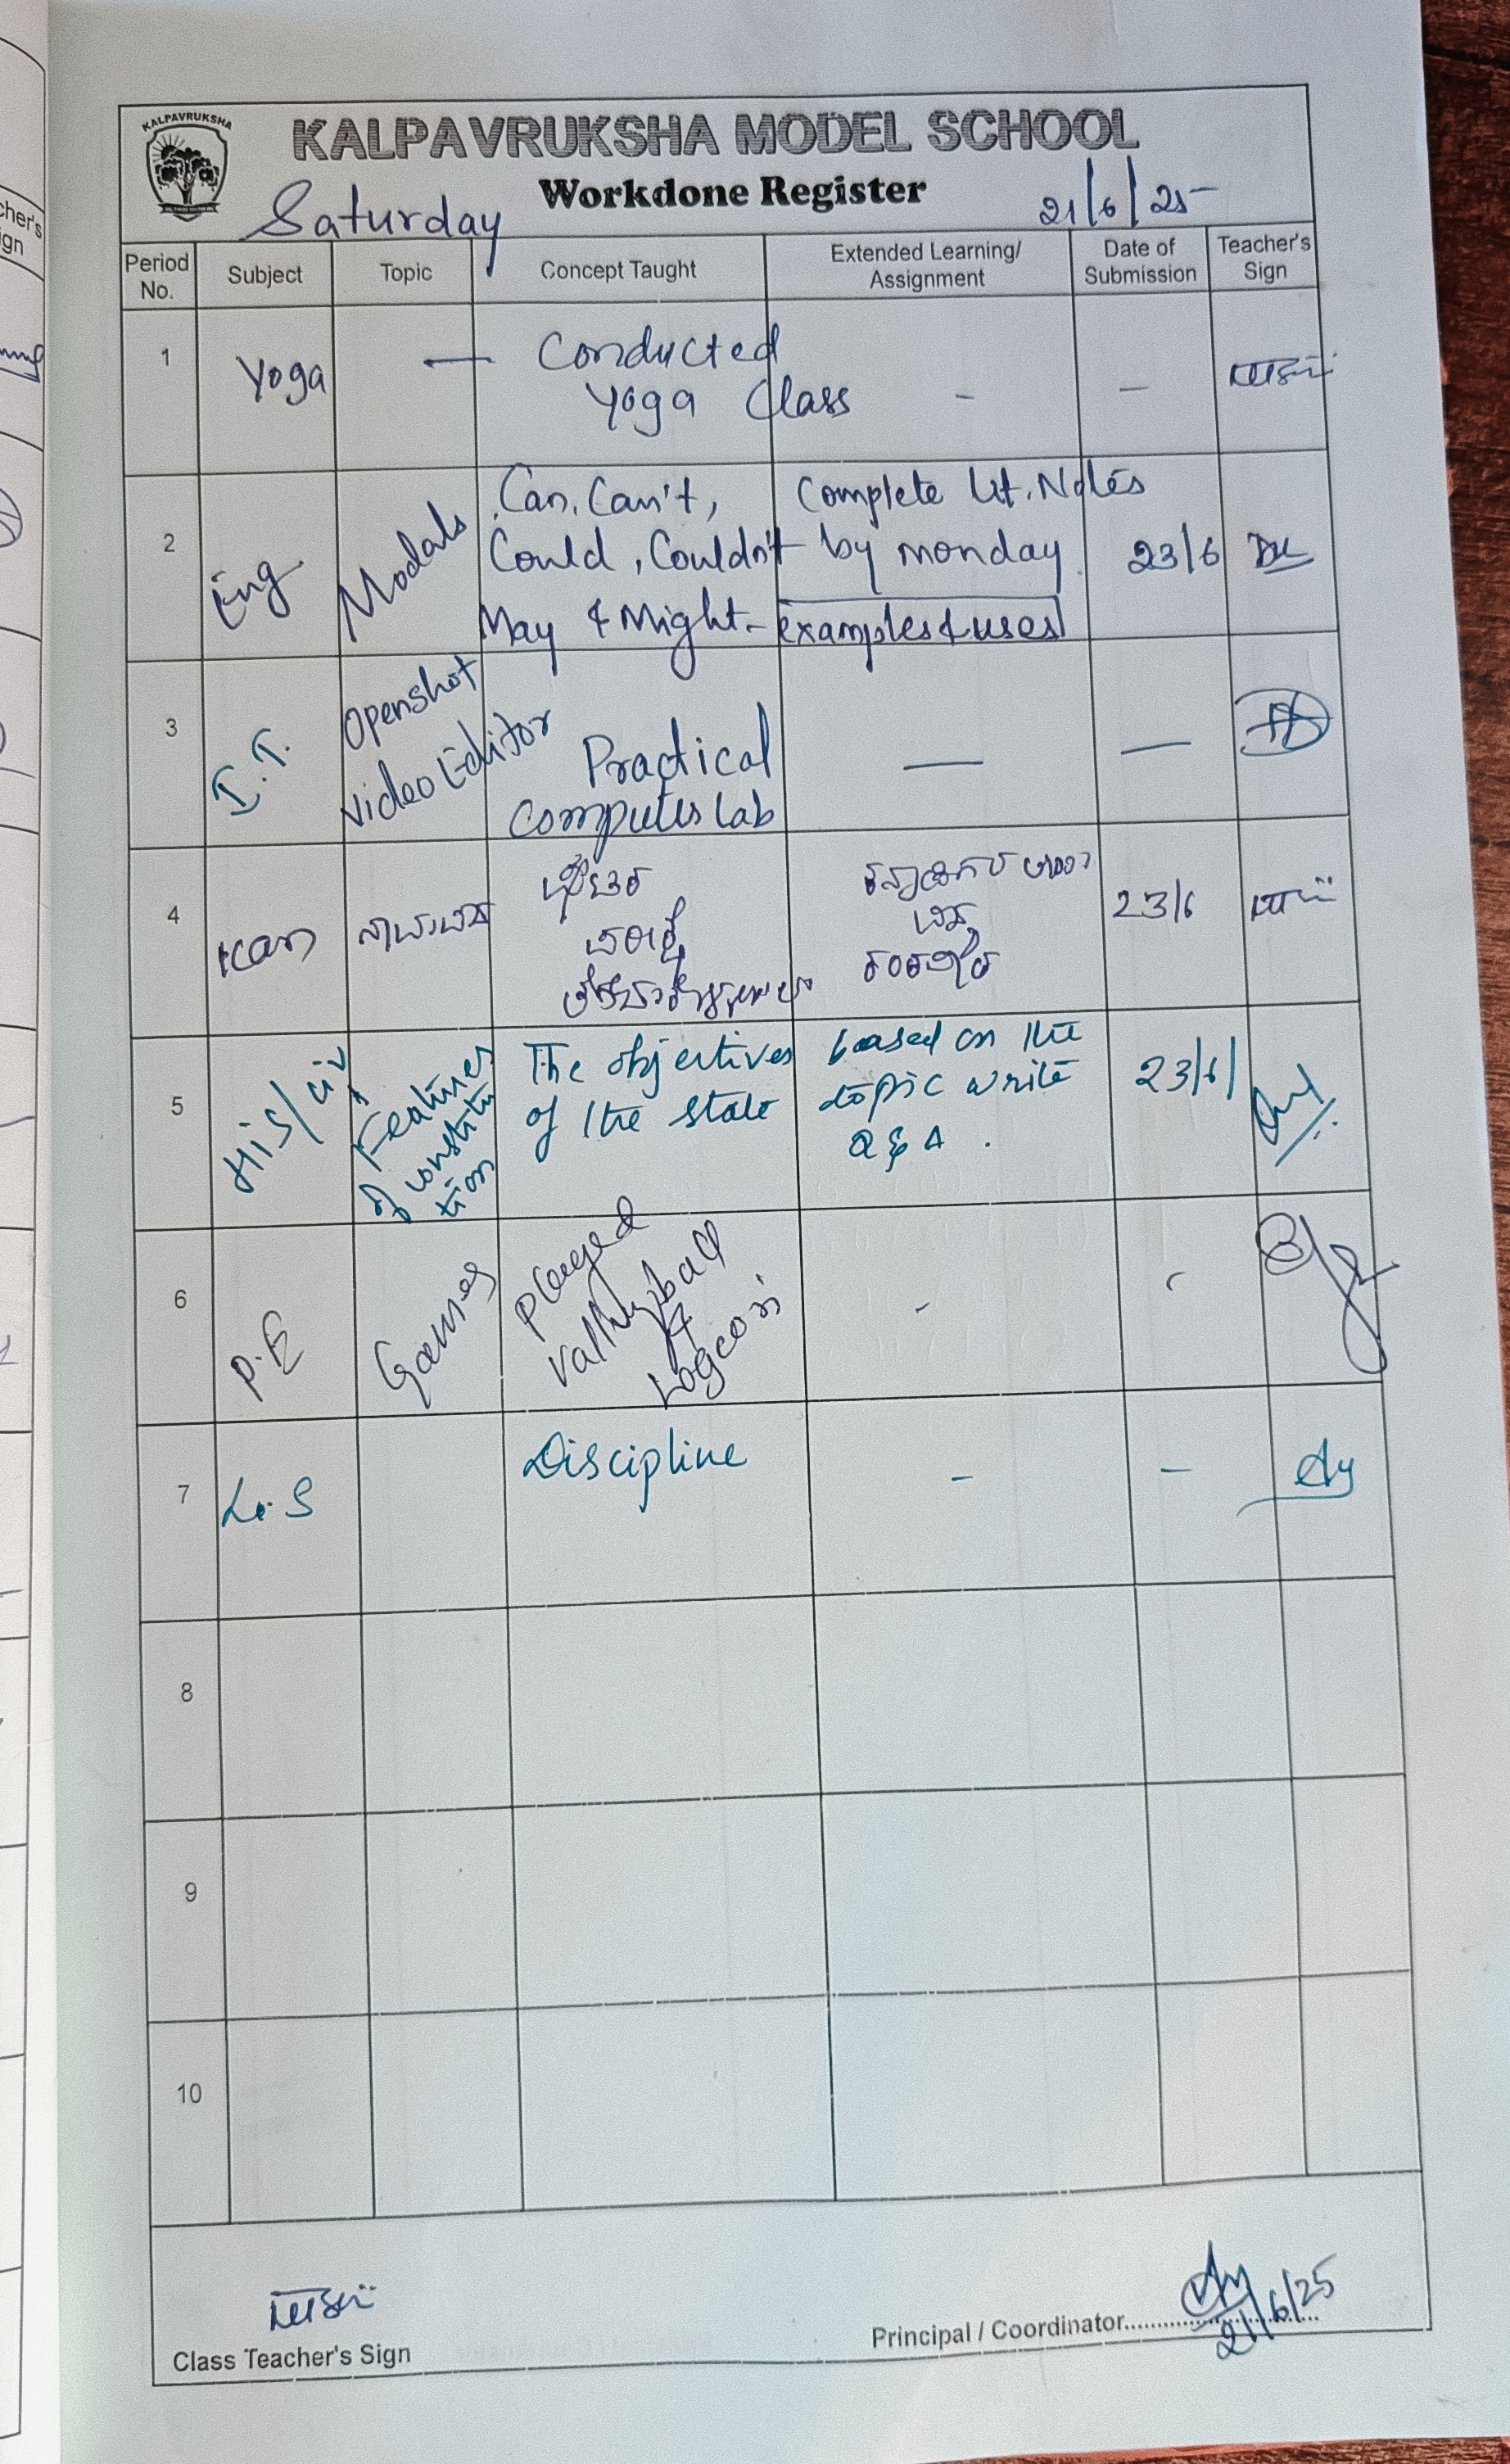 KALPAVRUKSHA
KALPAVRUKSHA MODEL SCHOOL
Workdone Register
Saturday
21/6/25
Period No.
Subject
Topic
Concept Taught
Extended Learning/
Assignment
Date of
Submission
Teacher's
Sign
1
Yoga
—
Conducted
Yoga Class
-
-
2
Eng
Modals
Can, Can't,
Could, Couldn't
May & Might -
Complete Lit. Notes
by monday
examples & uses
23/6
3
I.T.
Openshot
Video Editor
Practical
Computer Lab
—
—
4
Kan
23/6
5
His/civ
Features
of constitu
tion
The objectives
of the state
based on the
topic write
Q & A .
23/6/
6
P.E
Games
Played
Vallyball
&
-
-
7
L.S
Discipline
-
-
8
9
10
Class Teacher's Sign
Principal / Coordinator
21/6/25
cher's
ign